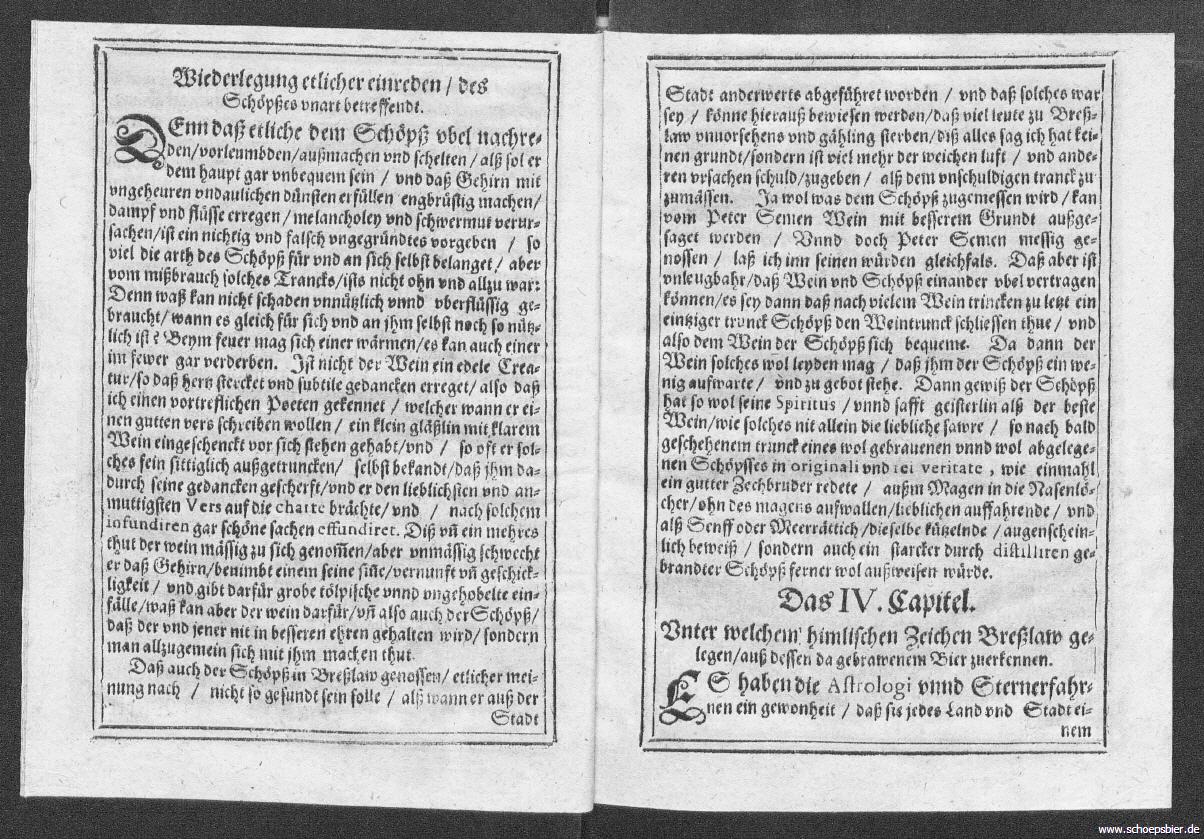 Wiederlegung etlicher einreden / des
Schöpßes vnart betreffendt.
DEnn daß etliche dem Schöpß vbel nachre-
den/vorleumbden/außmachen vnd schelten / alß sol er
dem haupt gar vnbequem sein / vnd daß Gehirn mit
vngeheuren vndaulichen dünsten erfüllen engbrüstig machen/
dampf vnd flüsse erregen / melancholey vnd schwermut verur-
sachen/ist ein nichtig vnd falsch vngegründtes vorgeben / so
viel die arth des Schöpß für vnd an sich selbst belanget / aber
vom mißbrauch solches Trancks/ists nicht ohn vnd allzu war:
Denn waß kan nicht schaden vnnützlich vnnd vberflüssig ge-
braucht/ wann es gleich für sich vnd an jhm selbst noch so nütz-
lich ist? Beym feuer mag sich einer wärmen/es kan auch einer
im fewer gar verderben. Ist nicht der Wein ein edele Crea-
tur/so daß hertz stercket vnd subtile gedancken erreget/ also daß
ich einen vortreflichen Poeten gekennet / welcher wann er ei-
nen gutten vers schreiben wollen / ein klein gläßlin mit klarem
Wein eingeschenckt vor sich stehen gehabt/vnd / so oft er sol-
ches fein sittiglich außgetruncken/ selbst bekandt/daß jhm da-
durch seine gedancken gescherft/vnd er den lieblichsten vnd an-
muttigsten Vers auf die charte brächte/vnd / nach solchem
infundiren gar schöne sachen effundiret. Diß vñ ein mehres
thut der wein mässig zu sich genom̃en/aber vnmässig schwecht
er daß Gehirn/benimbt einem seine siñe/vernunft vñ geschick-
ligkeit / vnd gibt darfür grobe tölpische vnnd vngehobelte ein-
fälle/waß kan aber der wein darfür/vñ also auch der Schöpß/
daß der vnd jener nit in besseren ehren gehalten wird/sondern
man allzugemein sich mit jhm machen thut.
Daß auch der Schöpß in Breßlaw genossen/ etlicher mei-
nung nach / nicht so gesundt sein solle / alß wann er auß der
Stadt
Stadt anderwerts abgeführet worden / vnd daß solches war
sey / könne hierauß bewiesen werden/daß viel leute zu Breß-
law vnuorsehens vnd gähling sterben/diß alles sag ich hat kei-
nen grundt/sondern ist viel mehr der weichen luft / vnd ande-
ren vrsachen schuld/zugeben / alß dem vnschuldigen tranck zu
zumässen. Ja wol was dem Schöpß zugemessen wird / kan
vom Peter Semen Wein mit besserem Grundt außge-
saget werden / Vnnd doch Peter Semen messig ge-
nossen / laß ich inn seinen würden gleichfals. Daß aber ist
vnleugbahr/daß Wein vnd Schöpß einander vbel vertragen
können/es sey dann daß nach vielem Wein trincken zu letzt ein
eintziger trunck Schöpß den Weintrunck schliessen thue / vnd
also dem Wein der Schöpß sich bequeme. Da dann der
Wein solches wol leyden mag / daß jhm der Schöpß ein we-
nig aufwarte / vnd zu gebot stehe. Dann gewiß der Schöpß
hat so wol seine Spiritus / vnnd safft geisterlin alß der beste
Wein/wie solches nit allein die liebliche sawre / so nach bald
geschehenem trunck eines wol gebrauenen vnnd wol abgelege-
nen Schöpsses in originali vnd rei veritate, wie einmahl
ein gutter Zechbruder redete / außm Magen in die Nasenlö-
cher/ohn des magens aufwallen/lieblichen auffahrende / vnd
alß Senff oder Meerrättich /dieselbe kützelnde / augenschein-
lich beweiß / sondern auch ein starcker durch distilliren ge-
brandter Schöpß ferner wol außweisen würde.
Das IV. Capitel.
Vnter welchem himlischen Zeichen Breßlaw ge-
legen/auß dessen da gebrawenem Bier zuerkennen.
ES haben die Astrologi vnnd Sternerfahr-
nen ein gewonheit / daß sis jedes Land vnd Stadt ei-
nem
www.schoepsbier.de